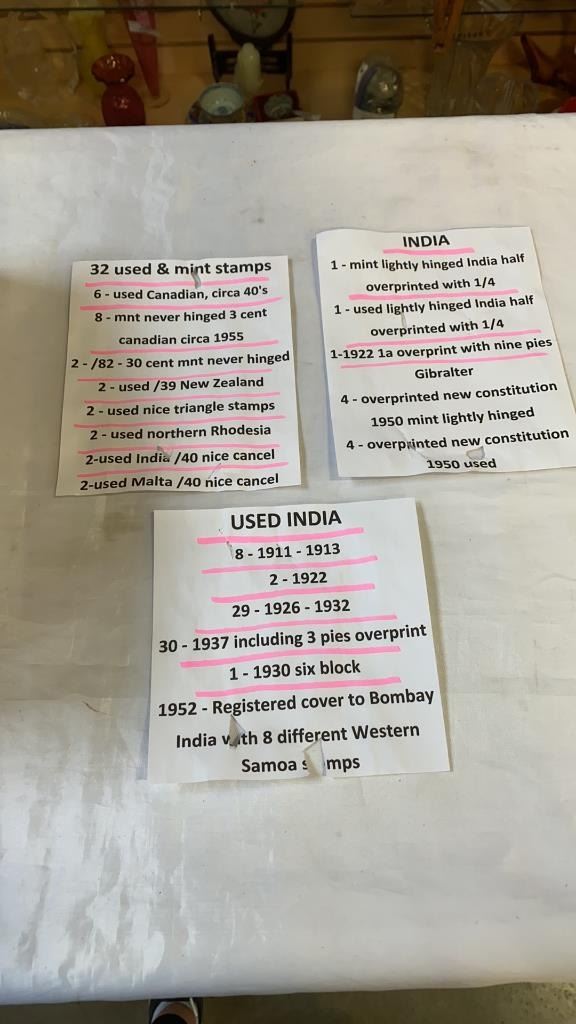 32 used & mint stamps
6 - used Canadian, circa 40's
8 - mnt never hinged 3 cent
canadian circa 1955
2 - /82 - 30 cent mnt never hinged
2 - used /39 New Zealand
2 - used nice triangle stamps
2 - used northern Rhodesia
2-used India /40 nice cancel
2-used Malta /40 nice cancel
INDIA
1 - mint lightly hinged India half
overprinted with 1/4
1 - used lightly hinged India half
overprinted with 1/4
1-1922 1a overprint with nine pies
Gibralter
4 - overprinted new constitution
1950 mint lightly hinged
4 - overprinted new constitution
1950 used
USED INDIA
8 - 1911 - 1913
2 - 1922
29 - 1926 - 1932
30 - 1937 including 3 pies overprint
1 - 1930 six block
1952 - Registered cover to Bombay
India with 8 different Western
Samoa s mps